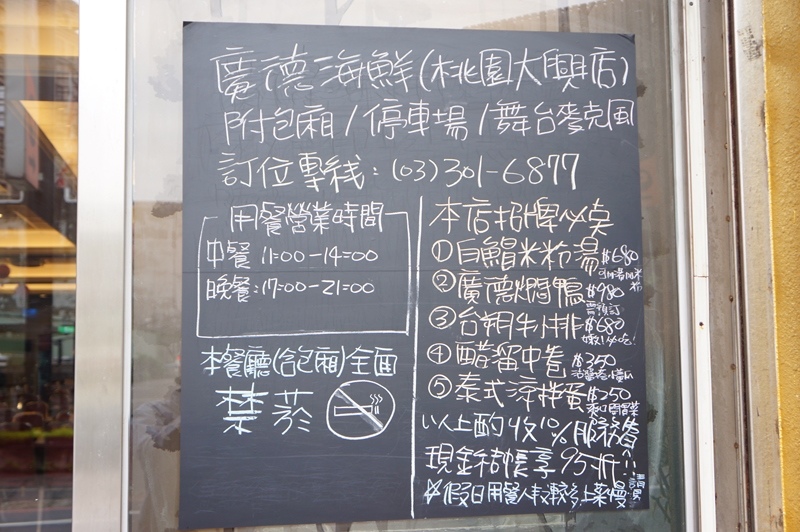 廣德海鮮(桃園大興店)
附包廂/停車場/舞台麥克風
訂位專线:(03)301-6877
用餐營業時間
中餐 11:00-14:00
晚餐:17:00-21:00
本餐廳(含包廂)全面
禁菸
本店招牌必点
①白鯧米粉湯$680
可加湯加米粉
②廣德燜鴨$980
需預訂
③台塑牛小排$680
嫩!好吃!
④醋溜中卷$350
⑤泰式涼拌蛋$250
爽口開胃菜
以上酌收10%服務費
現金結帳享95折!!
☆假日用餐人數較多,上菜慢
請見